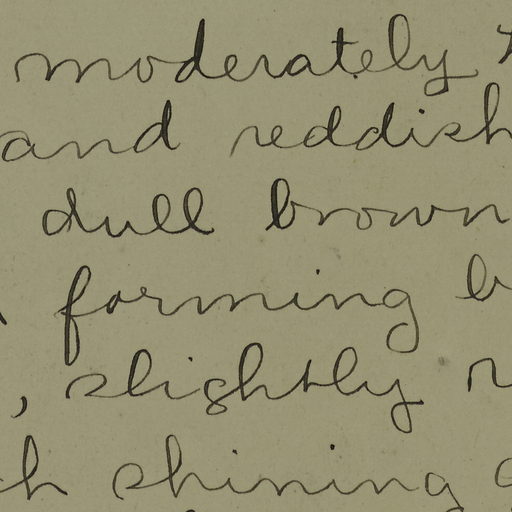 moderately
and reddish
dull brown
forming
, slightly
shining